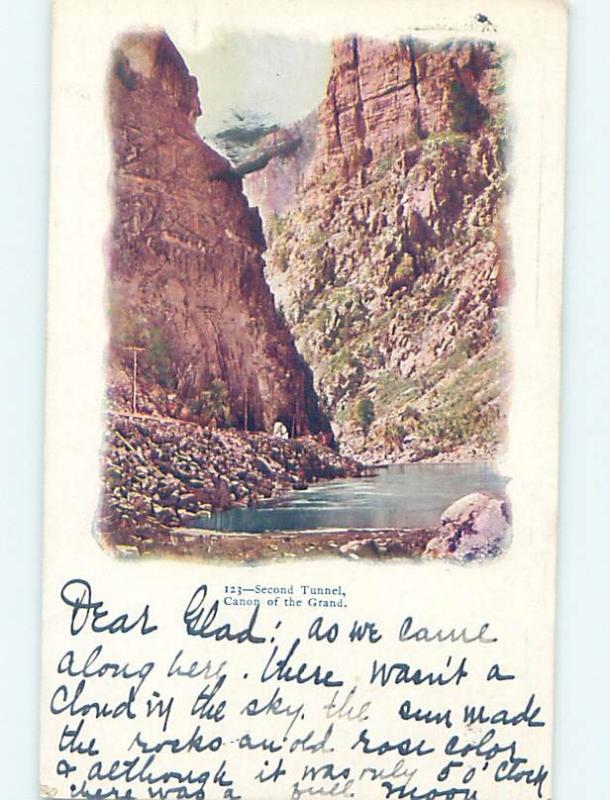 123—Second Tunnel,
Canon of the Grand.
Dear Glad: as we came
along here. there wasn't a
cloud in the sky. the sun made
the rocks an old rose color
& although it was only 5 o'clock
there was a full moon